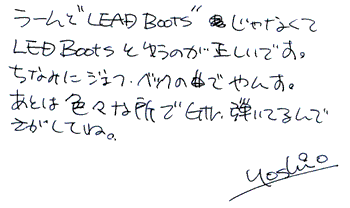 うーんと"LEAD BOOTS"じゃなくて
LED BOOTS とゆうのが正しいです。
ちなみにジェフ・ベックの曲でやんす。
あとは色々な所でGtr. 弾いてるんで
さがしてね。
Yoshio